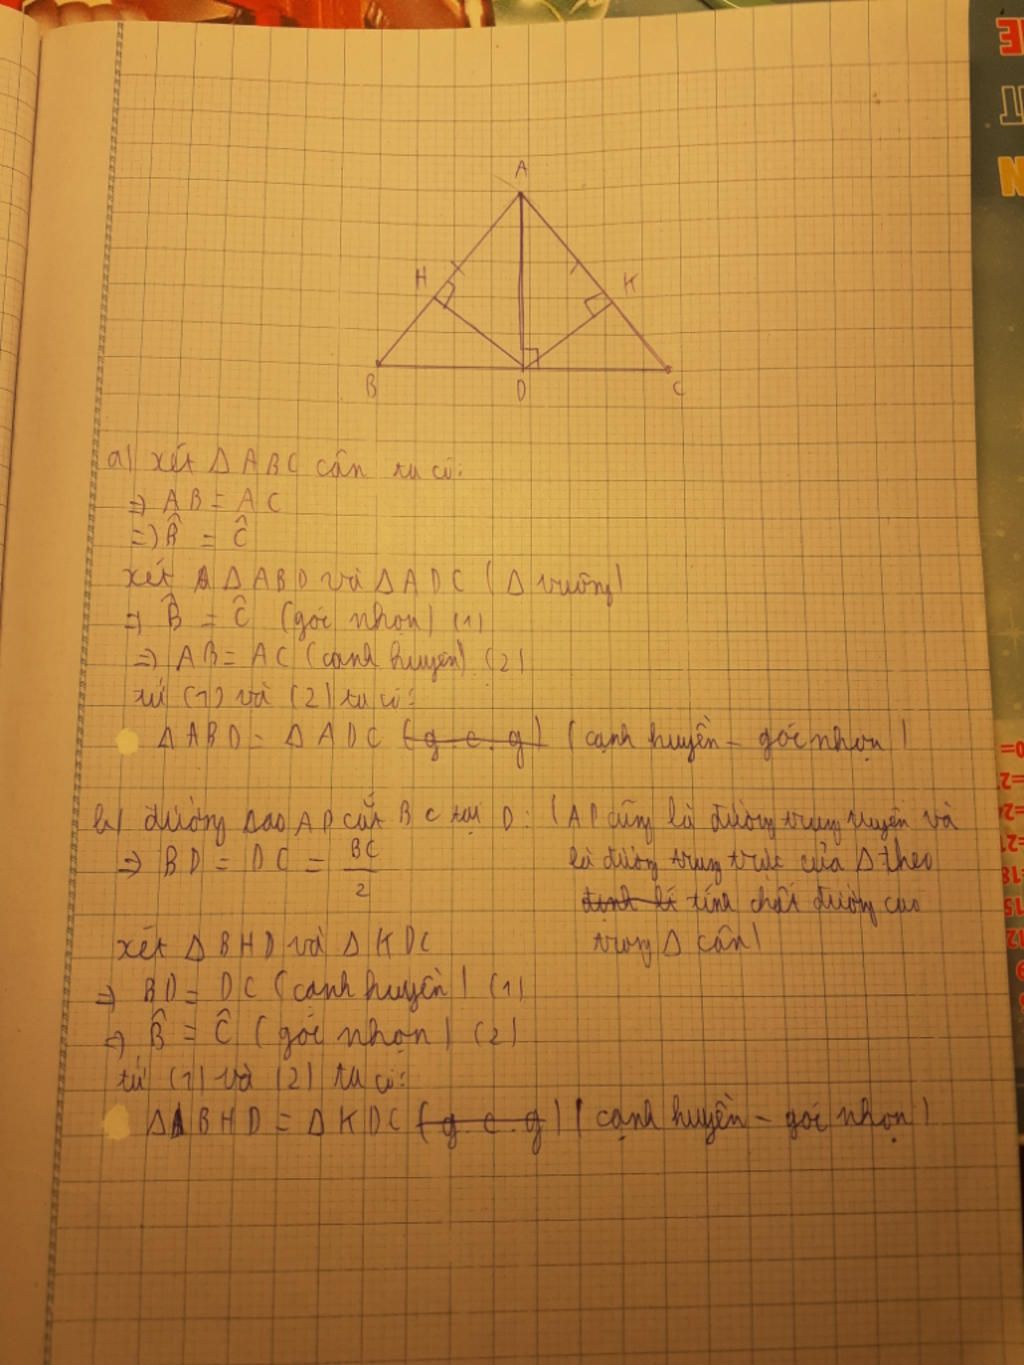 A
H
K
B
D
C
a) xét Δ ABC cân ta có:
=> AB = AC
=> B̂ = Ĉ
xét Δ ABD và Δ ADC (Δ vuông)
=> B̂ = Ĉ (góc nhọn) (1)
=> AB = AC (cạnh huyền) (2)
từ (1) và (2) ta có:
Δ ABD = Δ ADC (g.c.g) (cạnh huyền - góc nhọn)
b) đường cao AD cắt BC tại D: (AD cũng là đường trung tuyến và
=> BD = DC = BC/2 là đường trung trực của Δ theo
định lí tính chất đường cao
xét Δ BHD và Δ KDC trong Δ cân)
=> BD = DC (cạnh huyền) (1)
=> B̂ = Ĉ (góc nhọn) (2)
từ (1) và (2) ta có:
Δ BHD = Δ KDC (g.c.g) (cạnh huyền - góc nhọn)